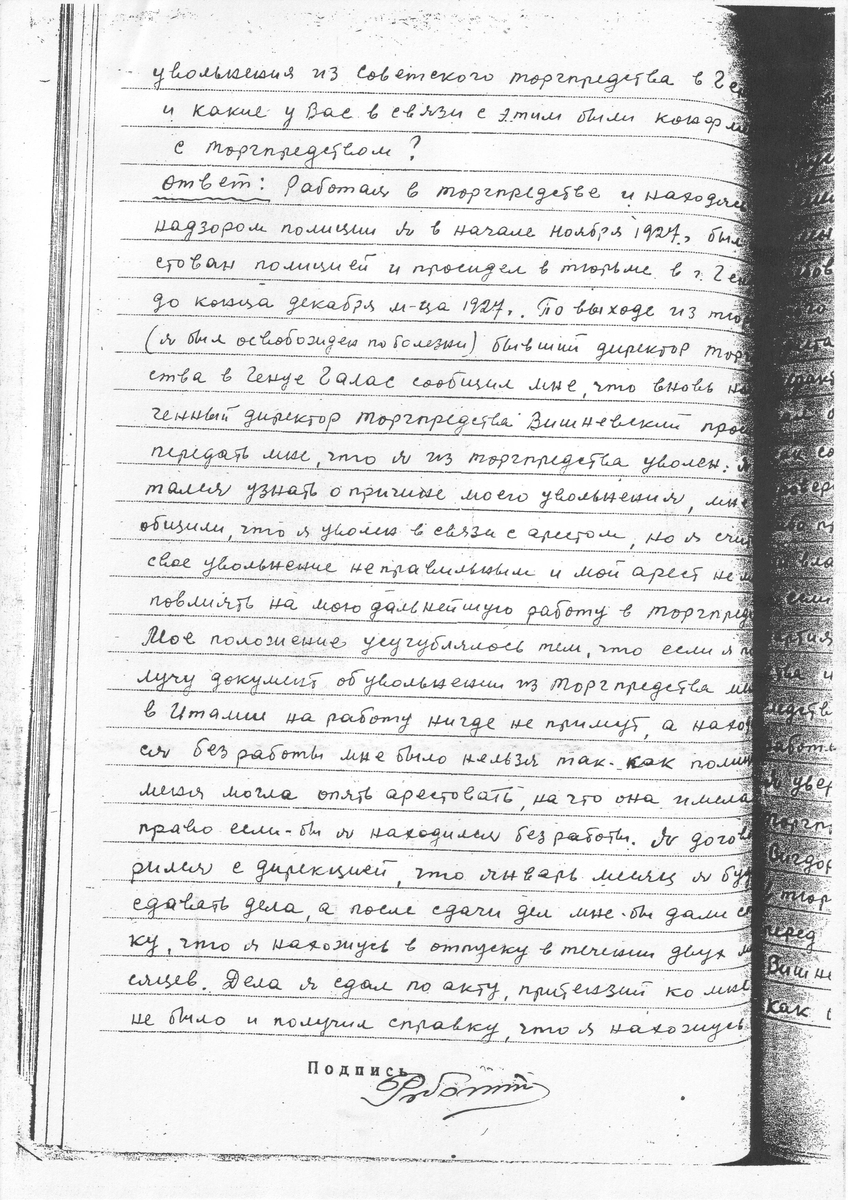 увольнения из советского торгпредства в Ген
и какие у Вас в связи с этим были
с торгпредством?
Ответ: Работая в торгпредстве и находяс
надзором полиции я в начале ноября 1927г. был
стован полицией и просидел в тюрьме в г. Ген
до конца декабря м-ца 1927г. По выходе из тюр
(я был освобожден по болезни) бывший директор торг
ства в Генуе Галас сообщил мне, что вновь на
ченный директор торгпредства Вишневский прос
передать мне, что я из торгпредства уволен. Я
тался узнать о причине моего увольнения, мне
общили, что я уволен в связи с арестом, но я счи
свое увольнение неправильным и мой арест не м
повлиять на мою дальнейшую работу в торгпред
Мое положение усугублялось тем, что если я п
лучу документ об увольнении из торгпредства мн
в Италии на работу нигде не примут, а наход
ся без работы мне было нельзя так-как полиц
меня могла опять арестовать, на что она имела
право если-бы я находился без работы. Я догов
рился с дирекцией, что январь месяц я буд
сдавать дела, а после сдачи дел мне-бы дали с
ку, что я нахожусь в отпуску в течении двух м
сяцев. Дела я сдал по акту, притензий ко мне
не было и получил справку, что я нахожусь
Подпись
Роботти
увер
торгп
Вигдор
тор
перед
Вишне
как